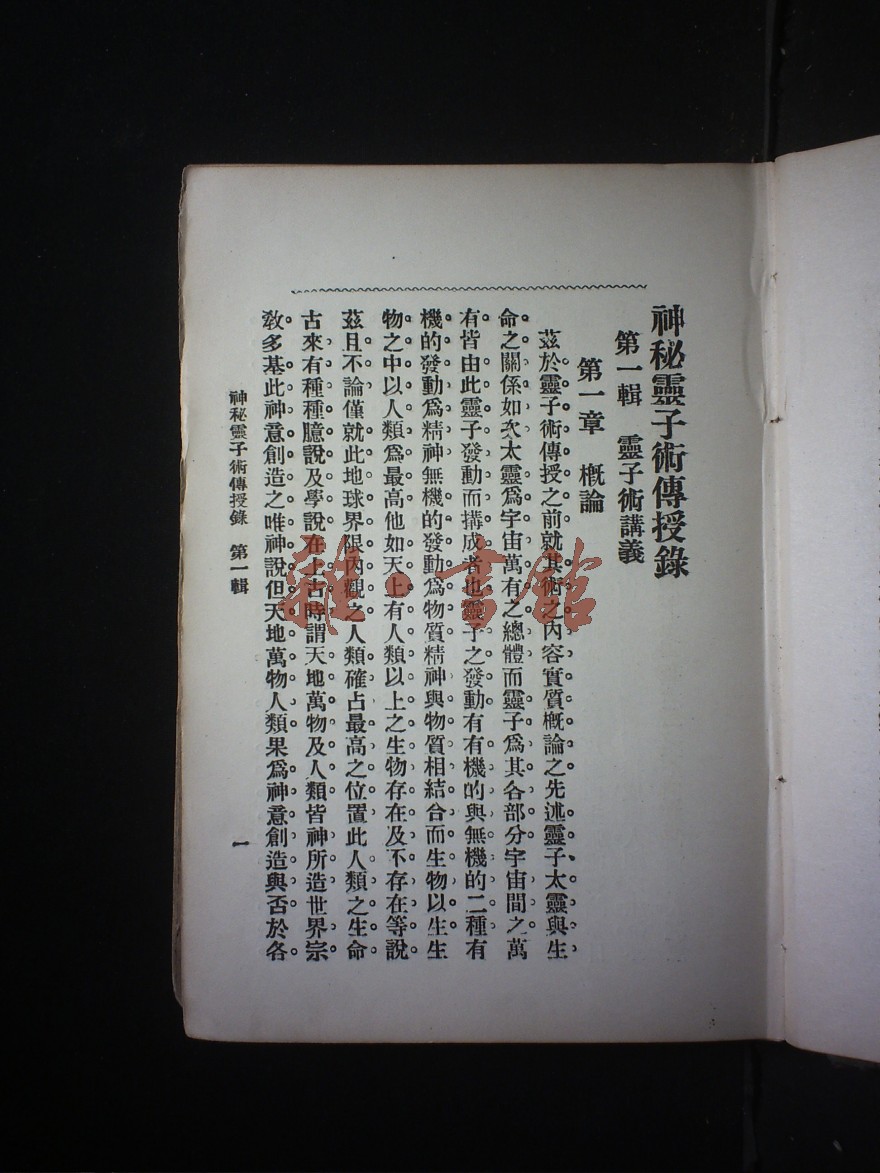 神秘靈子術傳授錄
第一輯　靈子術講義
第一章　槪論
茲於靈子術傳授之前就其術之內容實質槪論之先述靈子太靈與生
命之關係如次太靈爲宇宙萬有之總體而靈子爲其各部分宇宙間之萬
有皆由此靈子發動而搆成者也靈子之發動有有機的與無機的二種有
機的發動爲精神無機的發動爲物质精神與物质相結合而生物以生生
物之中以人類爲最高他如天上有人類以上之生物存在及不存在等說
茲且不論僅就此地球界限內觀之人類確占最高之位置此人類之生命
古來有種種臆說及學說在上古時謂天地萬物及人類皆神所造世界宗
敎多基此神意創造之唯神說但天地萬物人類果爲神意創造與否於各
神秘靈子術傳授錄　第一輯
一
雜·書館